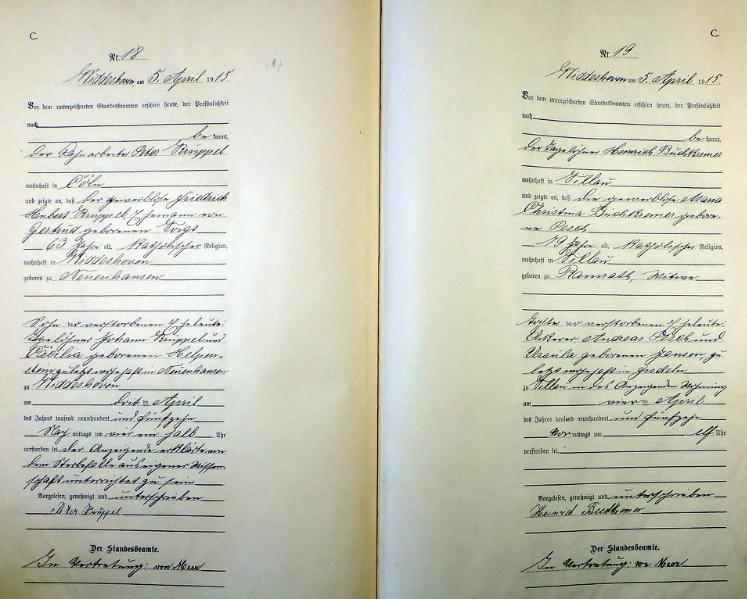 C.
Nr. 18
Widdeshoven am 5. April 1915
Vor dem unterzeichneten Standesbeamten erschien heute, der Persönlichkeit
nach
be kannt,
der Peter Krüppel
wohnhaft in Cöln
und zeigte an, daß der gewerblose Friedrich
Hubert Krüppel, Ehemann von
Gertrud geborenen Voigt
63 Jahre alt, katholischer Religion,
wohnhaft in Widdeshoven
geboren zu Neuenhausen
Sohn der verstorbenen Eheleute
Tagelöhner Johann Krüppel und
Cäcilia geborenen Helpen-
stein, zuletzt wohnhaft in Neuenhausen
zu Widdeshoven
am drei= April
des Jahres tausend neunhundert und fünfzehn
Nach mittags um ein halb Uhr
verstorben sei der Anzeigende erklärte von
dem Sterbefalle aus eigener Wissen-
schaft unterrichtet zu sein
Vorgelesen, genehmigt und unterschrieben
Peter Krüppel
Der Standesbeamte.
In Vertretung: von Meer
C.
Nr. 19
Widdeshoven am 5. April 1915
Vor dem unterzeichneten Standesbeamten erschien heute, der Persönlichkeit
nach
be kannt,
der Tagelöhner Heinrich Buchkremer
wohnhaft in Villau
und zeigte an, daß die gewerblose Maria
Christina Buchkremer gebore-
ne Pesch
79 Jahre alt, katholischer Religion,
wohnhaft in Villau
geboren zu Ramrath, Witwe
Tochter der verstorbenen Eheleute
Ackerer Andreas Pesch und
Ursula geborenen Jansen, zu
letzt wohnhaft in
zu Villau in des Anzeigenden Wohnung
am vier= April
des Jahres tausend neunhundert und fünfzehn
Vor mittags um elf Uhr
verstorben sei
Vorgelesen, genehmigt und unterschrieben
Heinrich Buchkremer
Der Standesbeamte.
In Vertretung: von Meer